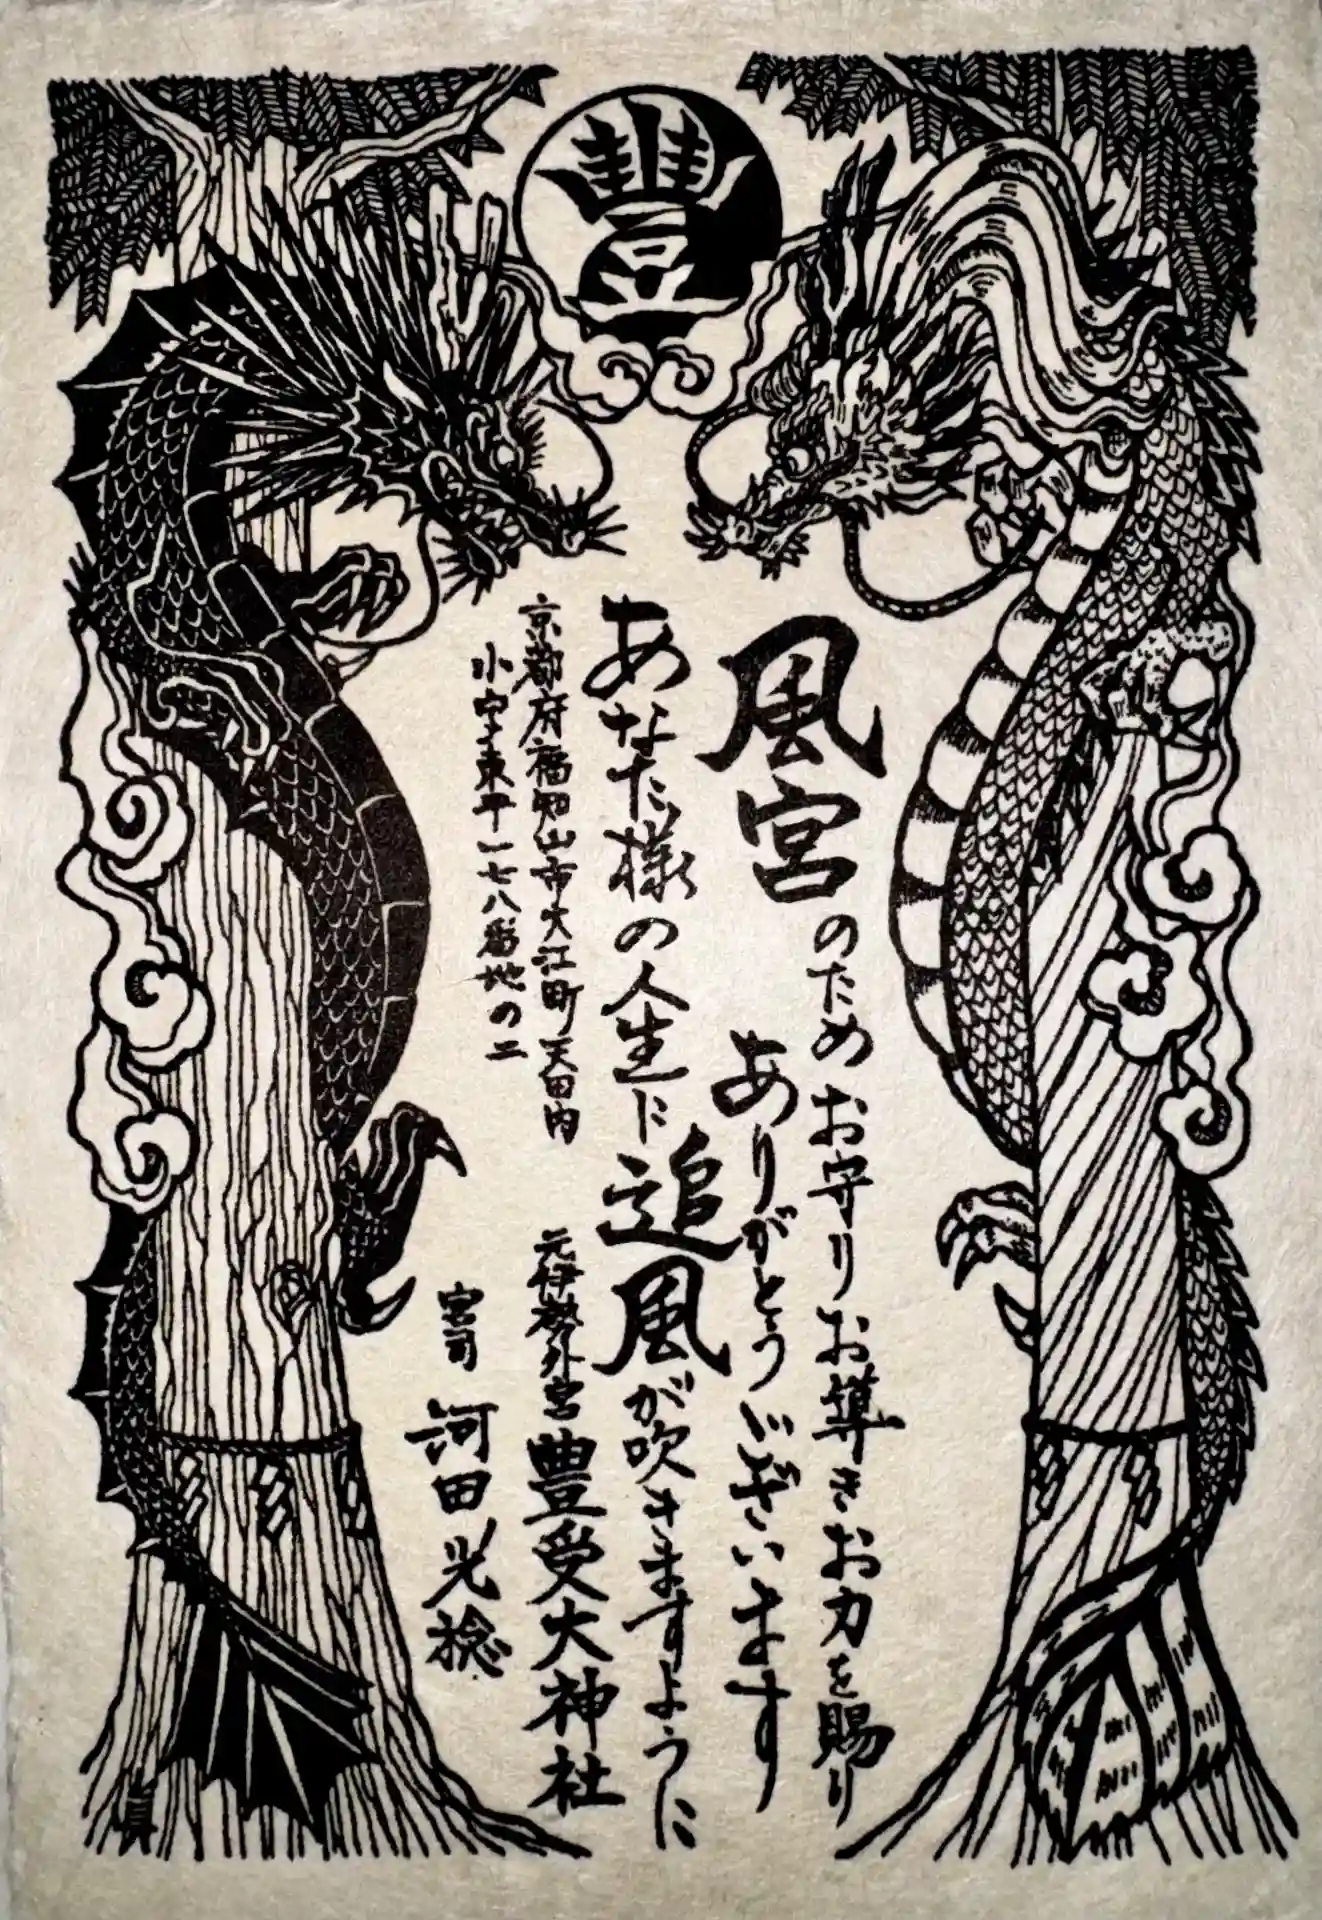 豐
風宮のためお守りお導きお力を賜り
ありがとうございます
あなた様の人生に追風が吹きますように
京都府福知山市大江町天田内
小字東平一七八番地の二
元伊勢外宮豊受大神社
宮司 河田光稔